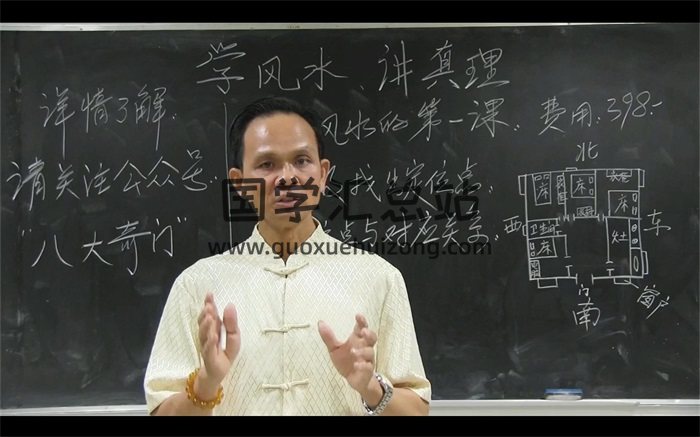 学风水、讲真理
详情了解:
请关注公众号:
"八大奇门"
风水的第一课:
费用:398.-
找 定位点:
点与对应关系:
国学汇总站
www.guoxuehuizong.com
北
西
东
南
门
窗户
床
床
床
床
卫生间
灶